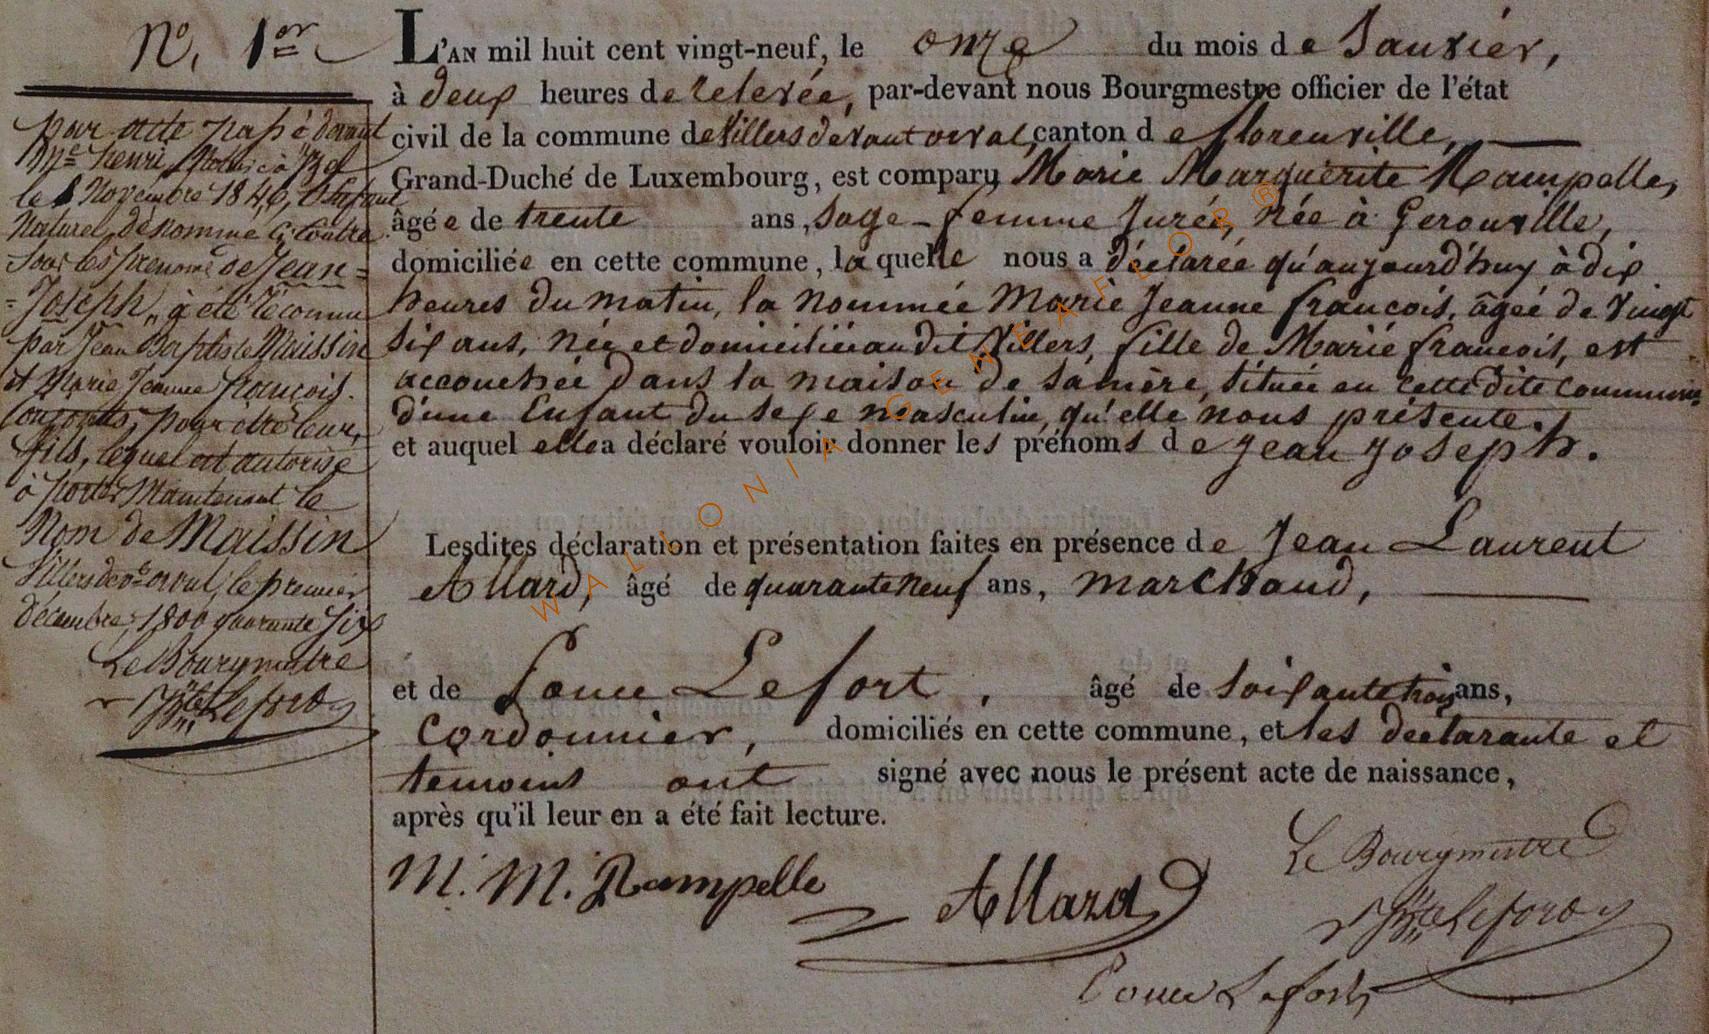 N°. 1er
pour acte passé devant
Me henri Notaire à
le 8 Novembre 1846, l'Enfant
Naturel dénommé Ci Contre
Sous les prénoms de Jean=
=Joseph, à été réconnu
par Jean Baptiste Maissin
et Marie Jeanne françois.
Conjoints, pour être leur,
fils, lequel est autorisé
à porter Maintenant le
Nom de Maissin
Villers dvt orval, le premier
décembre, 1800 quarante Six
Le Bourgmestre
Lefort
L'AN mil huit cent vingt-neuf, le onze du mois de Janvier,
à deux heures de relevée, par-devant nous Bourgmestre officier de l'état
civil de la commune de Villers devant orval, canton de florenville,
Grand-Duché de Luxembourg, est comparu Marie Marguerite Rampelle,
âgée de trente ans, sage-femme Jurée, née à Gerouville,
domiciliée en cette commune, laquelle nous a déclarée qu'aujourd'huy à dix
heures du matin, la nommée Marie Jeanne francois, âgée de vingt
six ans, née et domiciliée audit Villers, fille de Marie francois, est
accouchée dans la maison de sa mère, située en cette dite commune,
d'une Enfant du sexe masculin, qu'elle nous présente.
et auquel elle a déclaré vouloir donner les prénoms de Jean Joseph.
Lesdites déclaration et présentation faites en présence de Jean Laurent
Allard, âgé de quarante neuf ans, marchand,
et de Louis Lefort, âgé de soixante trois ans,
cordonnier, domiciliés en cette commune, et les déclarante et
temoins ont signé avec nous le présent acte de naissance,
après qu'il leur en a été fait lecture.
M. M. Rampelle
Allard
Le Bourgmestre
Lefort
Louis Lefort
WALLONIA GENEAFLOR ®